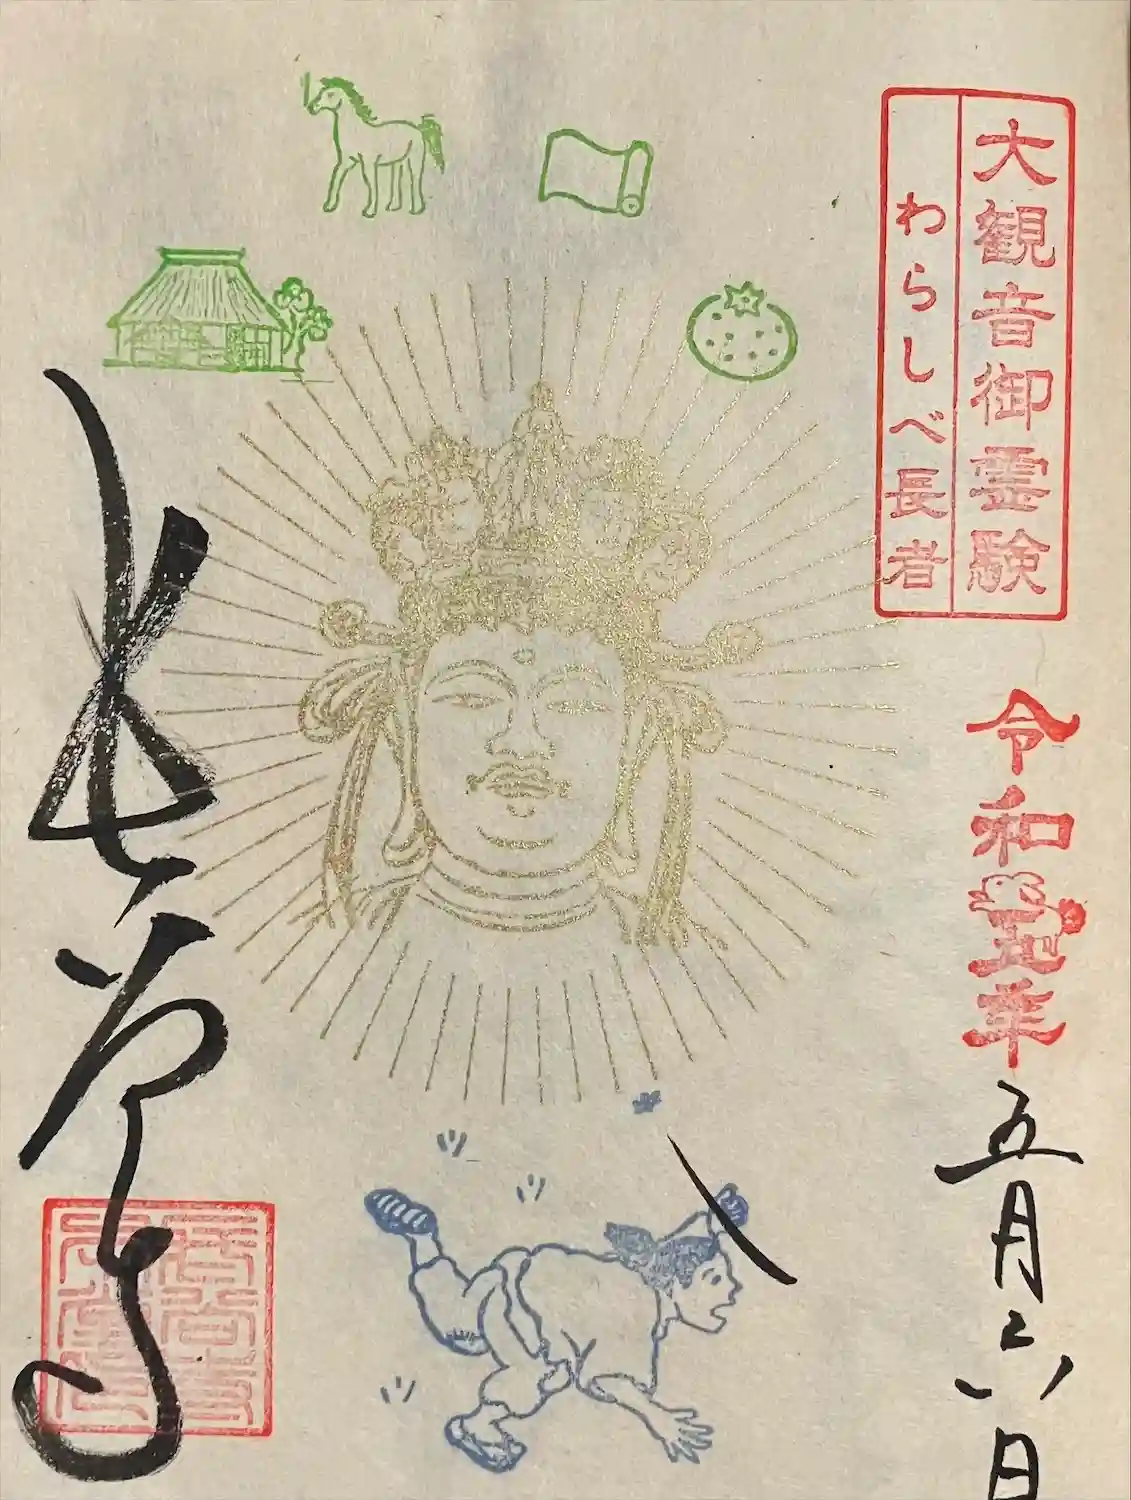 大観音御霊験
わらしべ長者
令和五年
五月二八日
長谷寺